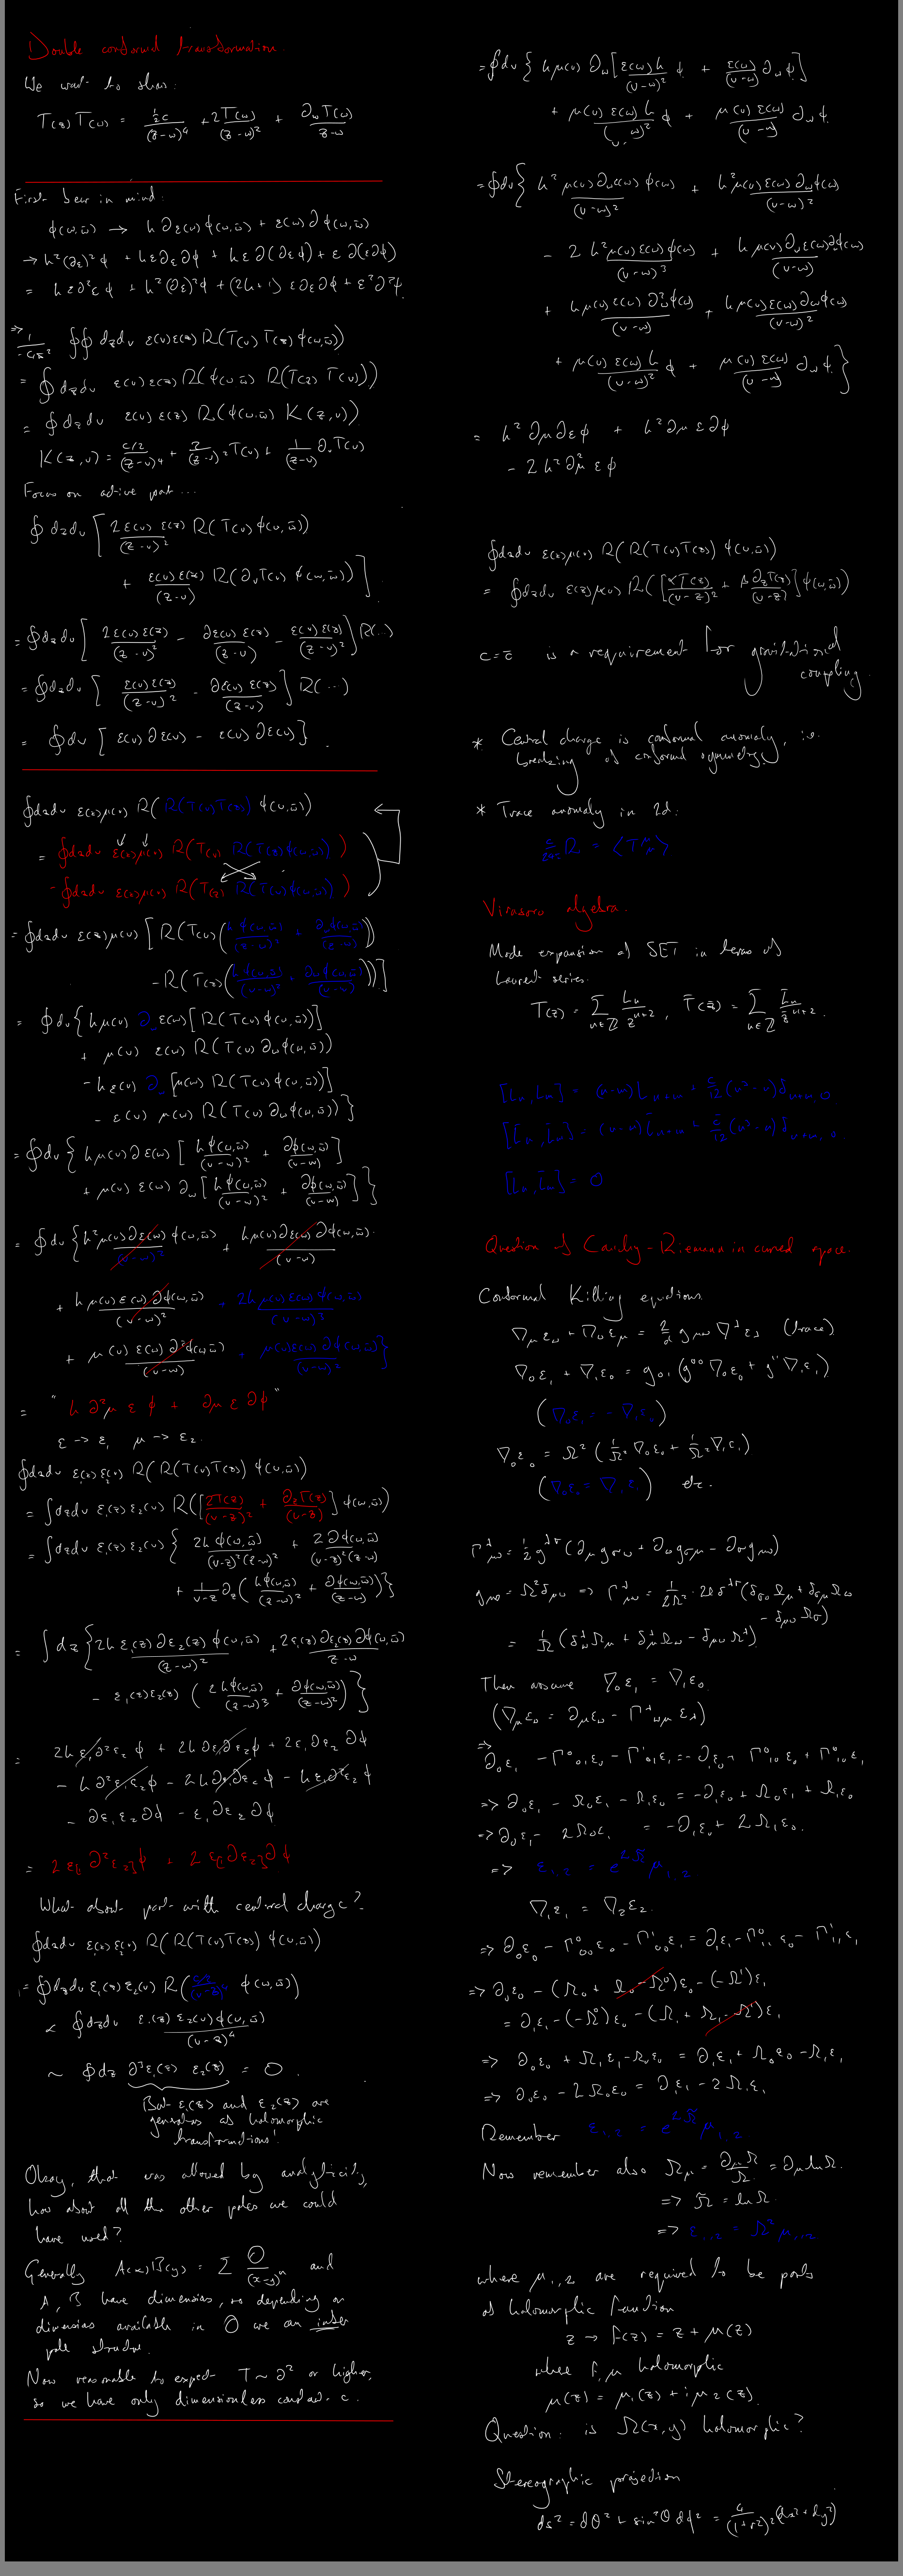 Double conformal transformation.
We want to show:
T(z)T(w) = ½c/(z-w)^4 + 2T(w)/(z-w)^2 + ∂_w T(w)/(z-w)
First bear in mind:
φ(w,w̄) → h∂ε(w)φ(w,w̄) + ε(w)∂φ(w,w̄)
→ h²(∂ε)²φ + hε∂ε∂φ + hε∂(∂εφ) + ε∂(ε∂φ)
= hε∂²εφ + h²(∂ε)²φ + (2h+1)ε∂ε∂φ + ε²∂²φ
⇒ 1/-4π² ∮∮ dzdv ε(v)ε(z)R(T(v)T(z)φ(w,w̄))
= ∮dzdv ε(v)ε(z)R(φ(w,w̄)R(T(z)T(v)))
= ∮dzdv ε(v)ε(z)R(φ(w,w̄)K(z,v))
K(z,v) = c/2/(z-v)^4 + 2/(z-v)^2 T(v) + 1/(z-v) ∂_vT(v)
Focus on active part...
∮dzdv [2ε(v)ε(z)/(z-v)² R(T(v)φ(w,w̄))
+ ε(v)ε(z)/(z-v) R(∂_vT(v)φ(w,w̄))]
= ∮dzdv [2ε(v)ε(z)/(z-v)² - ∂ε(v)ε(z)/(z-v) - ε(v)ε(z)/(z-v)²]R(...)
= ∮dzdv [ε(v)ε(z)/(z-v)² - ∂ε(v)ε(z)/(z-v)]R(...)
= ∮dv [ε(v)∂ε(v) - ε(v)∂ε(v)].
∮dzdv ε(z)μ(v)R(R(T(v)T(z))φ(w,w̄))
= ∮dzdv ε(z)μ(v)R(T(v)R(T(z)φ(w,w̄)))
- ∮dzdv ε(z)μ(v)R(T(z)R(T(v)φ(w,w̄)))
= ∮dzdv ε(z)μ(v)[R(T(v)(hφ(w,w̄)/(z-w)² + ∂φ(w,w̄)/(z-w)))
- R(T(z)(hφ(w,w̄)/(v-w)² + ∂φ(w,w̄)/(v-w)))]
= ∮dv{hμ(v)∂_wε(w)[R(T(v)φ(w,w̄))]
+ μ(v)ε(w)R(T(v)∂_wφ(w,w̄))
- hε(v)∂_w[μ(w)R(T(v)φ(w,w̄))]
- ε(v)μ(w)R(T(v)∂_wφ(w,w̄))}
= ∮dv{hμ(v)∂ε(w)[hφ(w,w̄)/(v-w)² + ∂φ(w,w̄)/(v-w)]
+ μ(v)ε(w)∂_w[hφ(w,w̄)/(v-w)² + ∂φ(w,w̄)/(v-w)]}
= ∮dv{h²μ(v)∂ε(w)φ(w,w̄)/(v-w)² + hμ(v)∂ε(w)∂φ(w,w̄)/(v-w)
+ hμ(v)ε(w)∂φ(w,w̄)/(v-w)² + 2hμ(v)ε(w)φ(w,w̄)/(v-w)³
+ μ(v)ε(w)∂²φ(w,w̄)/(v-w) + μ(v)ε(w)∂φ(w,w̄)/(v-w)²}
= "h∂²μεφ + ∂με∂φ"
ε→ε₁ μ→ε₂.
∮dzdv ε₁(z)ε₂(v)R(R(T(v)T(z))φ(w,w̄))
= ∫dzdv ε₁(z)ε₂(v)R([2T(z)/(v-z)² + ∂_zT(z)/(v-z)]φ(w,w̄))
= ∫dzdv ε₁(z)ε₂(v){2hφ(w,w̄)/(v-z)²(z-w)² + 2∂φ(w,w̄)/(v-z)²(z-w)
+ 1/(v-z) ∂_z(hφ(w,w̄)/(z-w)² + ∂φ(w,w̄)/(z-w))}
= ∫dz{2hε₁(z)∂ε₂(z)φ(w,w̄)/(z-w)² + 2ε₁(z)∂ε₂(z)∂φ(w,w̄)/(z-w)
- ε₁(z)ε₂(z)(2hφ(w,w̄)/(z-w)³ + ∂φ(w,w̄)/(z-w)²)}
= 2hε₁∂²ε₂φ + 2h∂ε₁∂ε₂φ + 2ε₁∂ε₂∂φ
- h∂²ε₁ε₂φ - 2h∂ε₁∂ε₂φ - hε₁∂²ε₂φ
- ∂ε₁ε₂∂φ - ε₁∂ε₂∂φ
= 2ε[₁∂²ε₂]φ + 2ε[₁∂ε₂]∂φ
What about part with central charge?
∮dzdv ε₁(z)ε₂(v)R(R(T(v)T(z))φ(w,w̄))
= ∮dzdv ε₁(z)ε₂(v)R(c/2/(v-z)⁴ φ(w,w̄))
∝ ∮dzdv ε₁(z)ε₂(v)φ(w,w̄)/(v-z)⁴
~ ∮dz ∂³ε₁(z)ε₂(z) = 0.
But ε₁(z) and ε₂(z) are
generators of holomorphic
transformations!
Okay, that was allowed by analyticity,
how about all the other poles we could
have used?
Generally A(x)B(y) = Σ O/(x-y)^n and
A, B have dimensions, so depending on
dimensions available in O we can infer
pole structure.
Now reasonable to expect T ~ ∂² or higher,
so we have only dimensionless constant c.
= ∮dv{hμ(v)∂_w[ε(w)h/(v-w)² φ + ε(w)/(v-w) ∂_wφ]
+ μ(v)ε(w)h/(v-w)² φ + μ(v)ε(w)/(v-w) ∂_wφ
= ∮dv{h²μ(v)∂_wε(w)φ(w)/(v-w)² + h²μ(v)ε(w)∂_wφ(w)/(v-w)²
- 2h²μ(v)ε(w)φ(w)/(v-w)³ + hμ(v)∂_wε(w)∂φ(w)/(v-w)
+ hμ(v)ε(w)∂²_wφ(w)/(v-w) + hμ(v)ε(w)∂_wφ(w)/(v-w)²
+ μ(v)ε(w)h/(v-w)² φ + μ(v)ε(w)/(v-w) ∂_wφ}
= h²∂μ∂εφ + h²∂με∂φ
- 2h²∂²μεφ
∮dzdv ε(z)μ(v)R(R(T(v)T(z))φ(w,w̄))
= ∮dzdv ε(z)μ(v)R([αT(z)/(v-z)² + β∂_zT(z)/(v-z)]φ(w,w̄))
c = c̄ is a requirement for gravitational
coupling.
* Central charge is conformal anomaly, i.e.
breaking of conformal symmetry.
* Trace anomaly in 2d:
c/24π R = <T^μ_μ>
Virasoro algebra.
Mode expansion of SET in terms of
Laurent series.
T(z) = Σ_{n∈Z} L_n/z^{n+2}, T̄(z̄) = Σ_{n∈Z} L̄_n/z̄^{n+2}.
[L_n, L_m] = (n-m)L_{n+m} + c/12(n³-n)δ_{n+m,0}
[L̄_n, L̄_m] = (n-m)L̄_{n+m} + c̄/12(n³-n)δ_{n+m,0}
[L_n, L̄_m] = 0
Question of Cauchy-Riemann in curved space.
Conformal Killing equations
∇_με_ν + ∇_νε_μ = 2/d g_μν∇^λε_λ (trace)
∇₀ε₁ + ∇₁ε₀ = g₀₁(g⁰⁰∇₀ε₀ + g¹¹∇₁ε₁)
(∇₀ε₁ = -∇₁ε₀)
∇₀ε₀ = Ω²(1/Ω²∇₀ε₀ + 1/Ω²∇₁ε₁)
(∇₀ε₀ = ∇₁ε₁) etc.
Γ^λ_μν = ½g^λσ(∂_μg_σν + ∂_νg_σμ - ∂_σg_μν)
g_μν = Ω²δ_μν ⇒ Γ^λ_μν = 1/2Ω² · 2Ωδ^λσ(δ_σνΩ_μ + δ_σμΩ_ν
- δ_μνΩ_σ)
= 1/Ω(δ^λ_νΩ_μ + δ^λ_μΩ_ν - δ_μνΩ^λ)
Then assume ∇₀ε₁ = ∇₁ε₀.
(∇_με_ν = ∂_με_ν - Γ^λ_νμε_λ)
⇒ ∂₀ε₁ - Γ⁰₀₁ε₀ - Γ¹₀₁ε₁ = -∂₁ε₀ + Γ⁰₁₀ε₀ + Γ¹₁₀ε₁
⇒ ∂₀ε₁ - Ω₀ε₁ - Ω₁ε₀ = -∂₁ε₀ + Ω₀ε₁ + Ω₁ε₀
⇒ ∂₀ε₁ - 2Ω₀ε₁ = -∂₁ε₀ + 2Ω₁ε₀.
⇒ ε₁,₂ = e^{2Ω̃}μ₁,₂
∇₁ε₁ = ∇₂ε₂.
⇒ ∂₀ε₀ - Γ⁰₀₀ε₀ - Γ¹₀₀ε₁ = ∂₁ε₁ - Γ⁰₁₁ε₀ - Γ¹₁₁ε₁
⇒ ∂₀ε₀ - (Ω₀ + Ω₀ - Ω⁰)ε₀ - (-Ω¹)ε₁
= ∂₁ε₁ - (-Ω⁰)ε₀ - (Ω₁ + Ω₁ - Ω¹)ε₁
⇒ ∂₀ε₀ + Ω₁ε₁ - Ω₀ε₀ = ∂₁ε₁ + Ω₀ε₀ - Ω₁ε₁
⇒ ∂₀ε₀ - 2Ω₀ε₀ = ∂₁ε₁ - 2Ω₁ε₁
Remember ε₁,₂ = e^{2Ω̃}μ₁,₂
Now remember also Ω_μ = ∂_μΩ/Ω = ∂_μ lnΩ.
⇒ Ω̃ = lnΩ.
⇒ ε₁,₂ = Ω²μ₁,₂
where μ₁,₂ are required to be parts
of holomorphic function
z → f(z) = z + μ(z)
where f, μ holomorphic
μ(z) = μ₁(z) + iμ₂(z).
Question: is Ω(x,y) holomorphic?
Stereographic projection
ds² = dθ² + sin²θdφ² = 4/(1+r²)²(dx²+dy²)